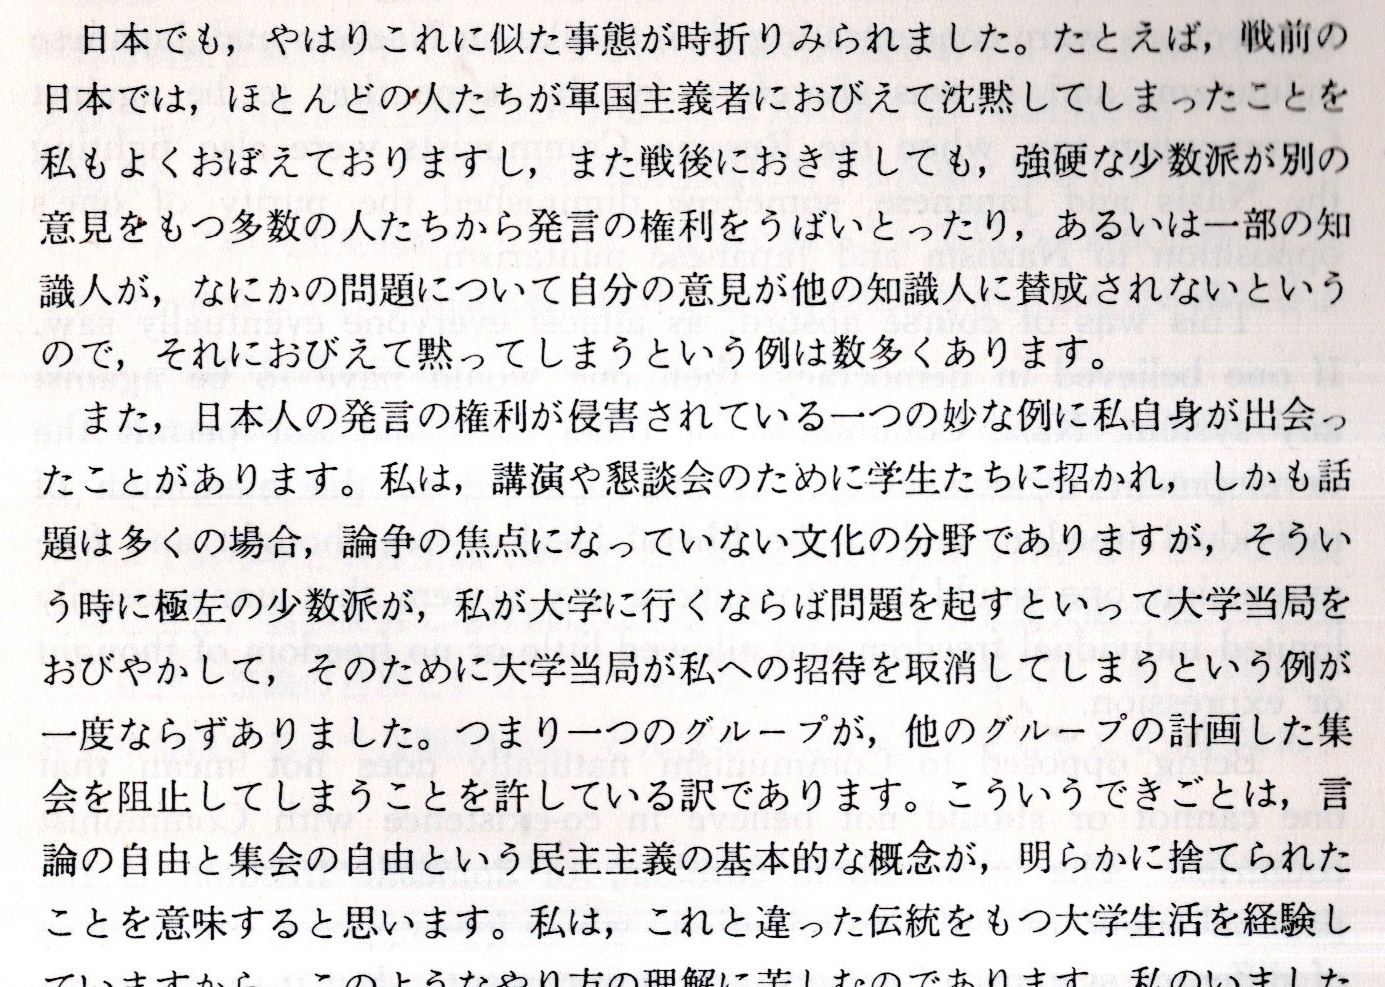 日本でも，やはりこれに似た事態が時折りみられました。たとえば，戦前の
日本では，ほとんどの人たちが軍国主義者におびえて沈黙してしまったことを
私もよくおぼえておりますし，また戦後におきましても，強硬な少数派が別の
意見をもつ多数の人たちから発言の権利をうばいとったり，あるいは一部の知
識人が，なにかの問題について自分の意見が他の知識人に賛成されないという
ので，それにおびえて黙ってしまうという例は数多くあります。
また，日本人の発言の権利が侵害されている一つの妙な例に私自身が出会っ
たことがあります。私は，講演や懇談会のために学生たちに招かれ，しかも話
題は多くの場合，論争の焦点になっていない文化の分野でありますが，そうい
う時に極左の少数派が，私が大学に行くならば問題を起すといって大学当局を
おびやかして，そのために大学当局が私への招待を取消してしまうという例が
一度ならずありました。つまり一つのグループが，他のグループの計画した集
会を阻止してしまうことを許している訳であります。こういうできごとは，言
論の自由と集会の自由という民主主義の基本的な概念が，明らかに捨てられた
ことを意味すると思います。私は，これと違った伝統をもつ大学生活を経験し
ていますから，このようなやり方の理解に苦しむのであります。私のいました